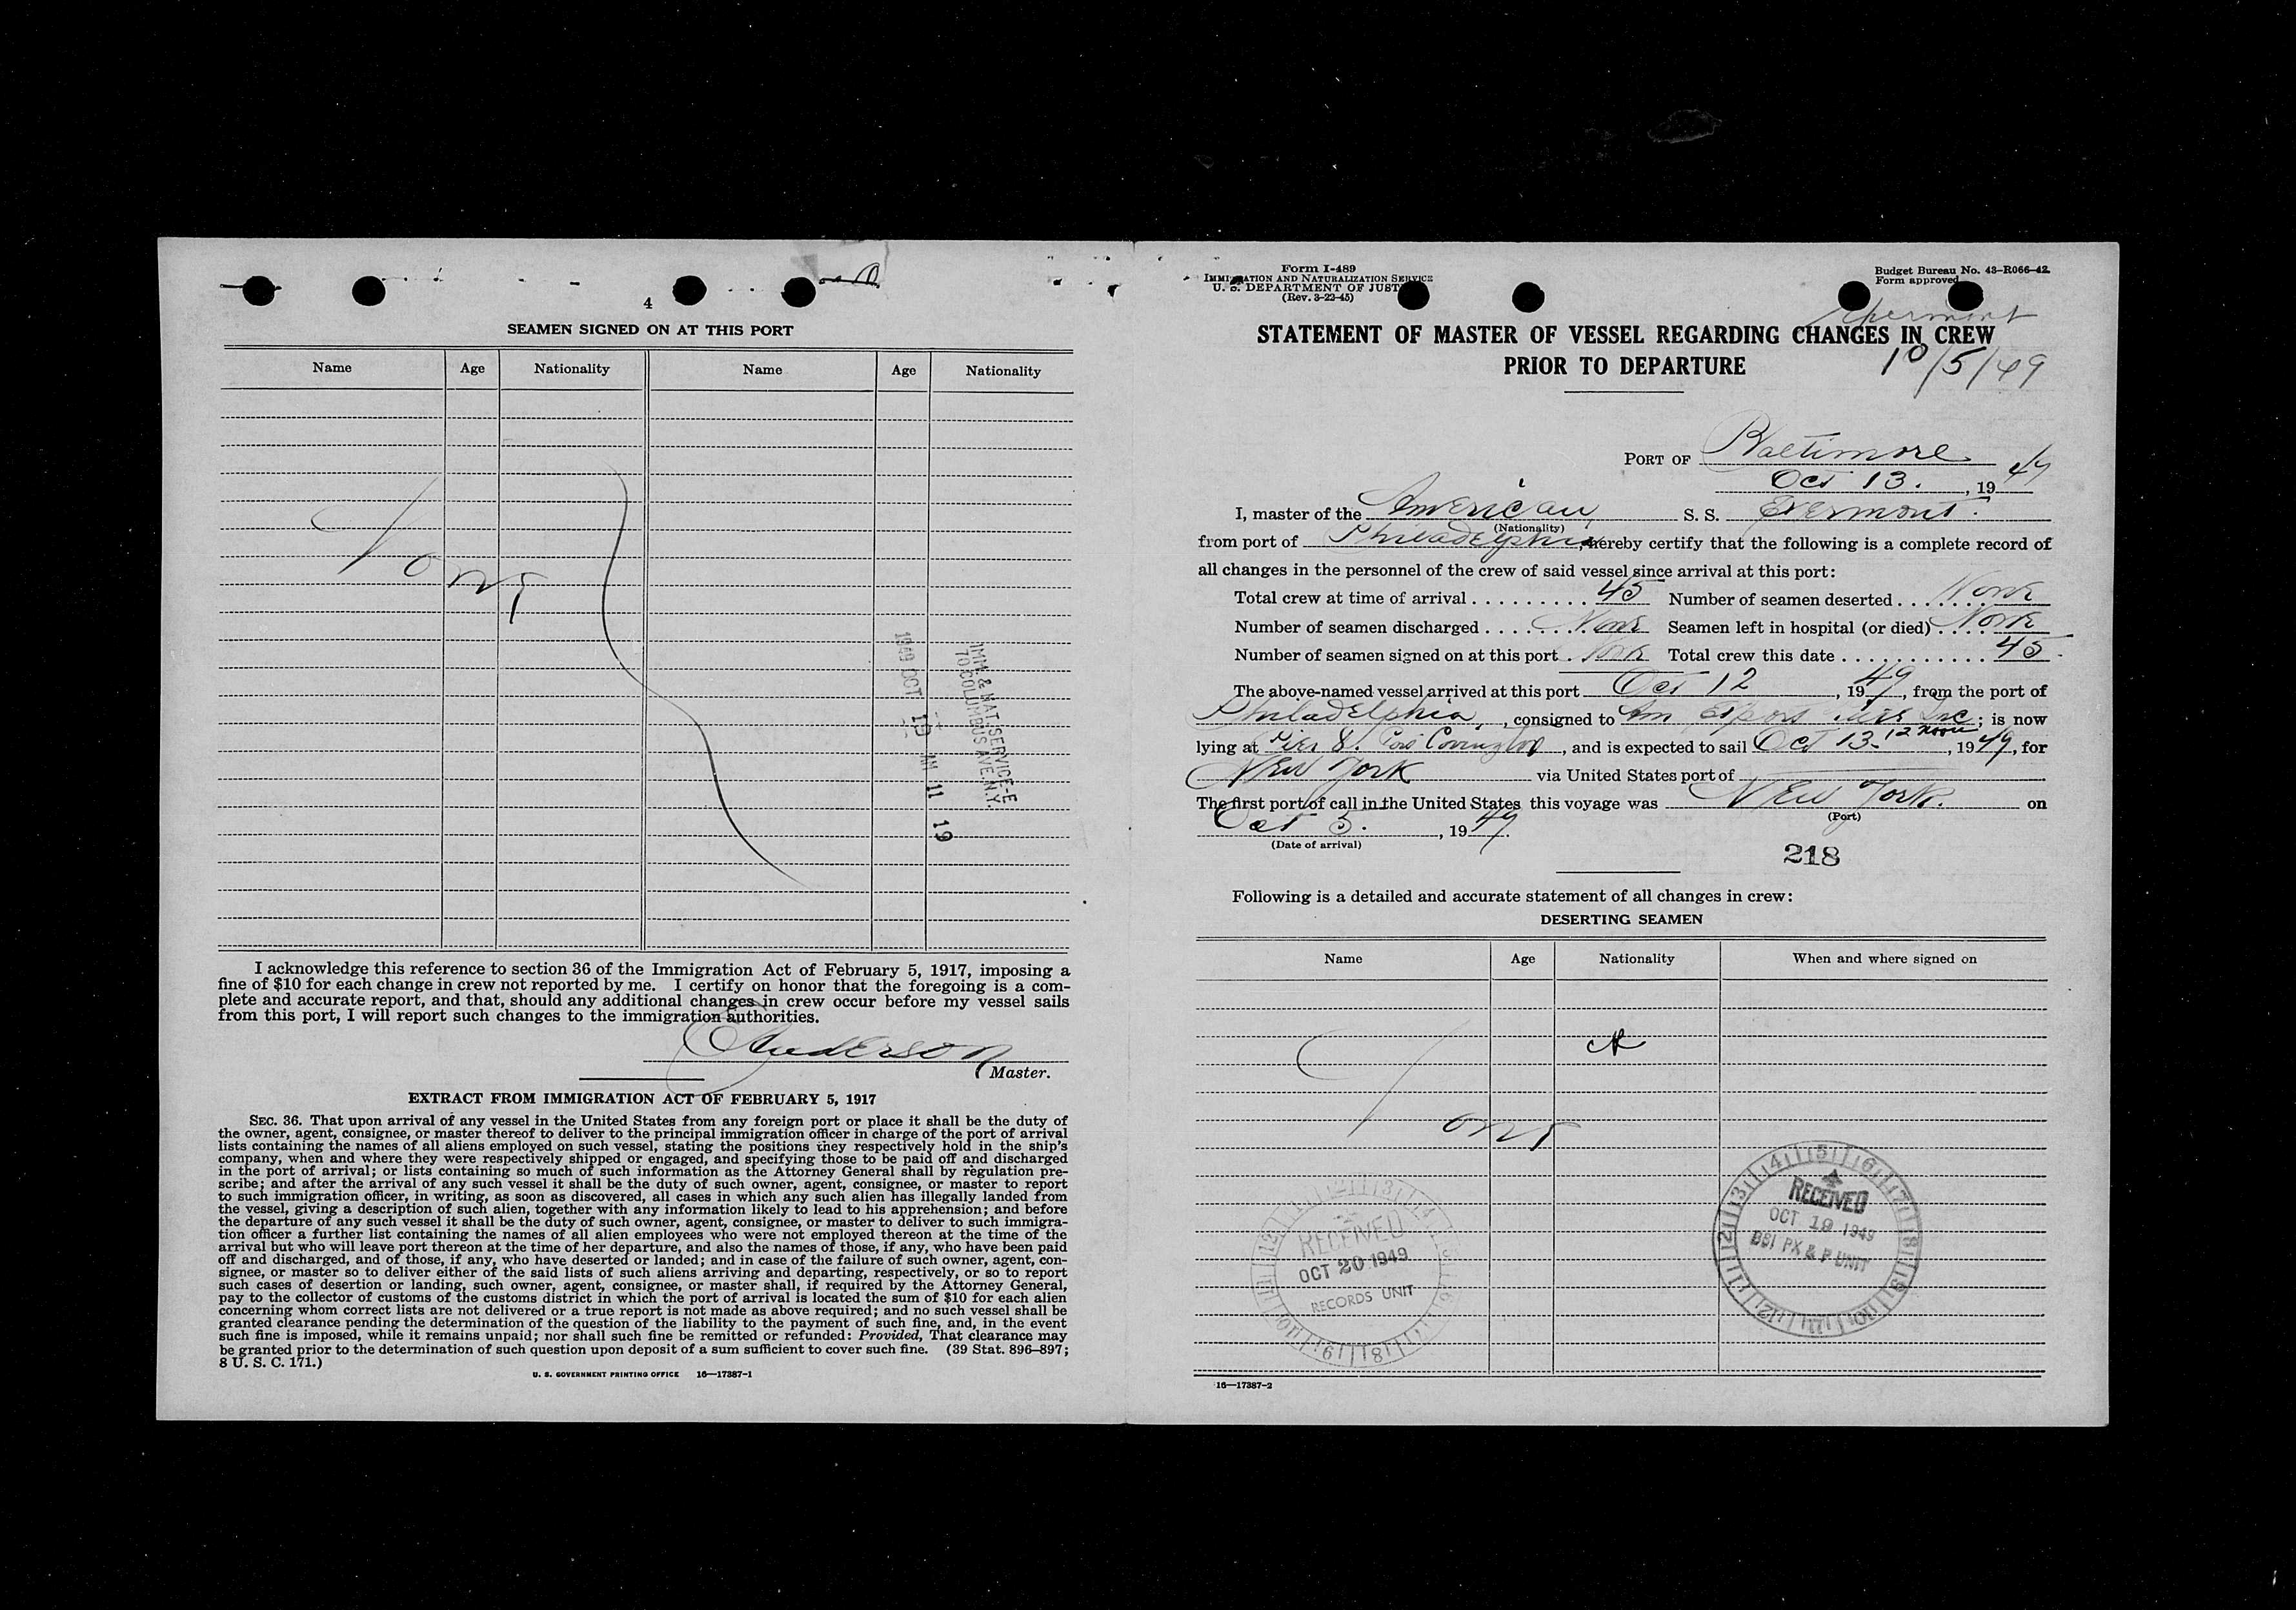 4
SEAMEN SIGNED ON AT THIS PORT
Name Age Nationality Name Age Nationality
None
1949 OCT 19 AM 11 19
IMM. & NAT. SERVICE-E
70 COLUMBUS AVE. N.Y.
I acknowledge this reference to section 36 of the Immigration Act of February 5, 1917, imposing a
fine of $10 for each change in crew not reported by me. I certify on honor that the foregoing is a com-
plete and accurate report, and that, should any additional changes in crew occur before my vessel sails
from this port, I will report such changes to the immigration authorities.
Anderson
Master.
EXTRACT FROM IMMIGRATION ACT OF FEBRUARY 5, 1917
SEC. 36. That upon arrival of any vessel in the United States from any foreign port or place it shall be the duty of
the owner, agent, consignee, or master thereof to deliver to the principal immigration officer in charge of the port of arrival
lists containing the names of all aliens employed on such vessel, stating the positions they respectively hold in the ship's
company, when and where they were respectively shipped or engaged, and specifying those to be paid off and discharged
in the port of arrival; or lists containing so much of such information as the Attorney General shall by regulation pre-
scribe; and after the arrival of any such vessel it shall be the duty of such owner, agent, consignee, or master to report
to such immigration officer, in writing, as soon as discovered, all cases in which any such alien has illegally landed from
the vessel, giving a description of such alien, together with any information likely to lead to his apprehension; and before
the departure of any such vessel it shall be the duty of such owner, agent, consignee, or master to deliver to such immigra-
tion officer a further list containing the names of all alien employees who were not employed thereon at the time of the
arrival but who will leave port thereon at the time of her departure, and also the names of those, if any, who have been paid
off and discharged, and of those, if any, who have deserted or landed; and in case of the failure of such owner, agent, con-
signee, or master so to deliver either of the said lists of such aliens arriving and departing, respectively, or so to report
such cases of desertion or landing, such owner, agent, consignee, or master shall, if required by the Attorney General,
pay to the collector of customs of the customs district in which the port of arrival is located the sum of $10 for each alien
concerning whom correct lists are not delivered or a true report is not made as above required; and no such vessel shall be
granted clearance pending the determination of the question of the liability to the payment of such fine, and, in the event
such fine is imposed, while it remains unpaid; nor shall such fine be remitted or refunded: Provided, That clearance may
be granted prior to the determination of such question upon deposit of a sum sufficient to cover such fine. (39 Stat. 896–897;
8 U. S. C. 171.)
U. S. GOVERNMENT PRINTING OFFICE 16—17387-1
Form I-489
IMMIGRATION AND NATURALIZATION SERVICE
U. S. DEPARTMENT OF JUST
(Rev. 3-22-45)
Budget Bureau No. 43-R066-42.
Form approved
Evermont
STATEMENT OF MASTER OF VESSEL REGARDING CHANGES IN CREW
PRIOR TO DEPARTURE
10/5/49
PORT OF Baltimore
Oct 13. , 19 49
I, master of the American S. S. Evermont.
(Nationality)
from port of Philadelphia, hereby certify that the following is a complete record of
all changes in the personnel of the crew of said vessel since arrival at this port:
Total crew at time of arrival 45 Number of seamen deserted None
Number of seamen discharged None Seamen left in hospital (or died) None
Number of seamen signed on at this port None Total crew this date 45
The above-named vessel arrived at this port Oct 12, 1949, from the port of
Philadelphia, consigned to Am Export Inc; is now
lying at Pier 8. Port Covington, and is expected to sail Oct 13. 12 Noon, 1949, for
New York via United States port of
The first port of call in the United States this voyage was New York. on
(Port)
Oct 5., 1949.
(Date of arrival)
218
Following is a detailed and accurate statement of all changes in crew:
DESERTING SEAMEN
Name Age Nationality When and where signed on
None
RECEIVED
OCT 20 1949
RECORDS UNIT
RECEIVED
OCT 19 1949
BBI PX & P UNIT
16—17387-2